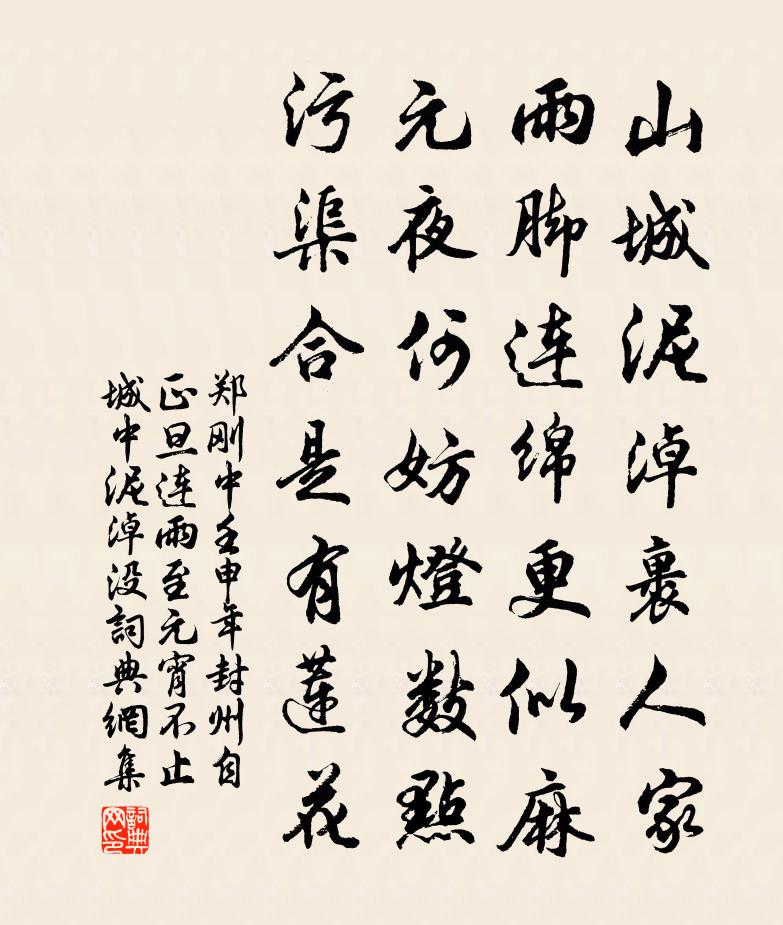 山城泥淖裹人家
雨脚连绵更似麻
元夜何妨燈數點
污渠合是有蓮花
郑刚中壬申年封州自
正旦连雨至元宵不止
城中泥淖没詞典網集
詞典网印